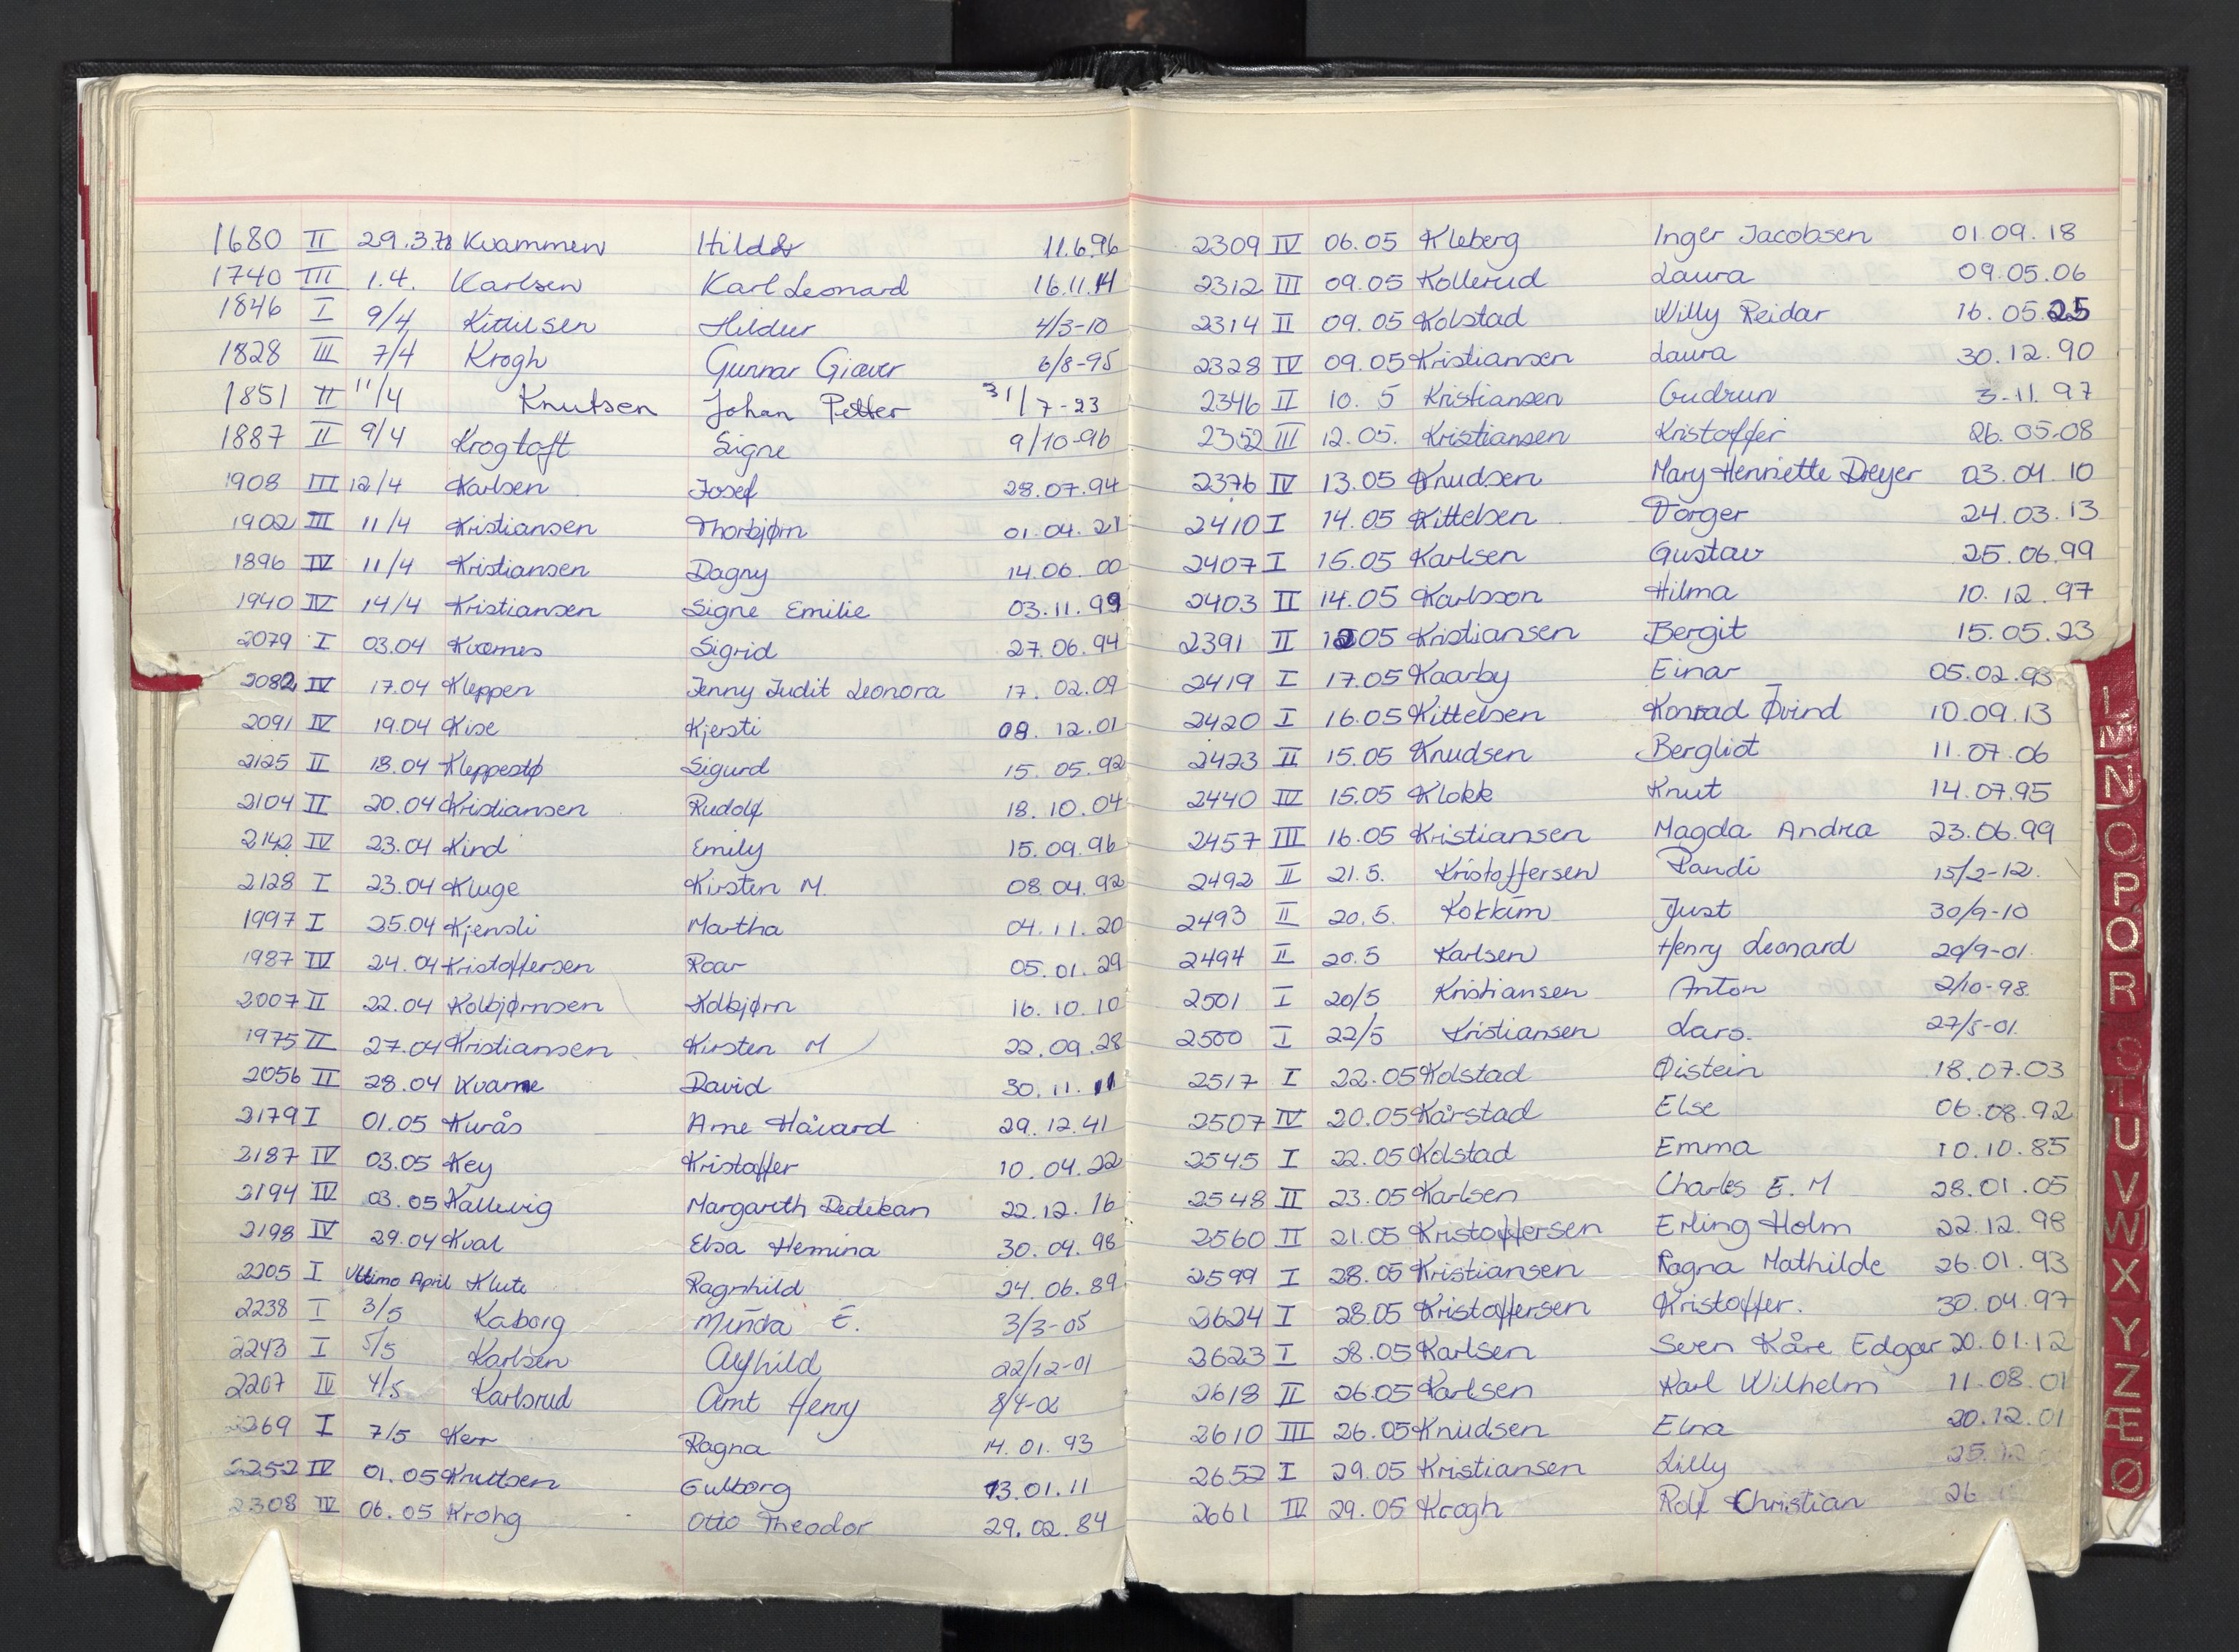 1680 II 29.3.78 Kvammen Hildur 11.6.96
1740 III 1.4. Karlsen Karl Leonard 16.11.14
1846 I 9/4 Kittilsen Hildur 4/3-10
1828 III 7/4 Krogh Gunnar Giæver 6/8-95
1851 II 11/4 Knutsen Johan Petter 31/7-23
1887 II 9/4 Krogtoft Signe 9/10-96
1908 III 12/4 Karlsen Josef 28.07.94
1902 III 11/4 Kristiansen Thorbjørn 01.04.21
1896 IV 11/4 Kristiansen Dagny 14.06.00
1940 IV 14/4 Kristiansen Signe Emilie 03.11.99
2079 I 03.04 Kværnes Sigrid 27.06.94
2082 IV 17.04 Kleppen Jenny Judit Leonora 17.02.09
2091 IV 19.04 Kise Kjersti 08.12.01
2125 II 18.04 Kleppestø Sigurd 15.05.92
2104 II 20.04 Kristiansen Rudolf 18.10.04
2142 IV 23.04 Kind Emily 15.09.96
2128 I 23.04 Kluge Kirsten M. 08.04.92
1997 I 25.04 Kjensli Martha 04.11.20
1987 IV 24.04 Kristoffersen Roar 05.01.29
2007 II 22.04 Kolbjørnsen Kolbjørn 16.10.10
1975 II 27.04 Kristiansen Kirsten M 22.09.28
2056 II 28.04 Kvarme David 30.11.11
2179 I 01.05 Kurås Arne Håvard 29.12.41
2187 IV 03.05 Key Kristoffer 10.04.22
2194 IV 03.05 Kallevig Margareth Dedekan 22.12.16
2198 IV 29.04 Kval Elsa Hemina 30.04.98
2205 I Ultimo April Klute Ragnhild 24.06.89
2238 I 3/5 Kaborg Minda E. 3/3-05
2243 I 5/5 Karlsen Alfhild 22/12-01
2207 IV 4/5 Karlsrud Arnt Henry 8/4-02
2269 I 7/5 Kerr Ragna 14.01.93
2252 IV 01.05 Knutsen Gulborg 13.01.11
2308 IV 06.05 Krohg Otto Theodor 29.02.84
2309 IV 06.05 Kleberg Inger Jacobsen 01.09.18
2312 III 09.05 Kollerud Laura 09.05.06
2314 II 09.05 Kolstad Willy Reidar 16.05.25
2328 IV 09.05 Kristiansen Laura 30.12.90
2346 II 10.5 Kristiansen Gudrun 3-11.97
2352 III 12.05. Kristiansen Kristoffer 26.05.08
2376 IV 13.05 Knudsen Mary Henriette Dreyer 03.04.10
2410 I 14.05 Kittelsen Torger 24.03.13
2407 I 15.05 Karlsen Gustav 25.06.99
2403 II 14.05 Karlsson Hilma 10.12.97
2391 II 12.05 Kristiansen Bergit 15.05.23
2419 I 17.05 Kaarby Einar 05.02.95
2420 I 16.05 Kittelsen Konrad Øivind 10.09.13
2423 II 15.05 Knudsen Bergliot 11.07.06
2440 III 15.05 Klokk Knut 14.07.95
2457 III 16.05 Kristiansen Magda Andrea 23.06.99
2492 II 21.5. Kristoffersen Randi 15/2-12.
2493 II 20.5. Kokkim Just 30/9-10
2494 II 20.5 Karlsen Henry Leonard 29/9-01.
2501 I 20/5 Kristiansen Anton 2/10-98.
2500 I 22/5 Kristiansen Lars. 27/5-01.
2517 I 22.05 Kolstad Øistein 18.07.03
2507 IV 20.05 Kårstad Else 06.08.92
2545 I 22.05 Kolstad Emma 10.10.85
2548 II 23.05 Karlsen Charles E. M 28.01.05
2560 II 21.05 Kristoffersen Erling Holm 22.12.98
2599 I 28.05 Kristiansen Ragna Mathilde 26.01.93
2624 I 28.05 Kristoffersen Kristoffer. 30.04.97
2623 I 28.05 Karlsen Sven Kåre Edgar 20.01.12
2618 II 26.05 Karlsen Karl Wilhelm 11.08.01
2610 III 26.05 Knudsen Elna 20.12.01
2652 I 29.05 Kristiansen Lilly 25.12
2661 IV 29.05 Krogh Rolf Christian 26
L
M
N
O
P
Q
R
S
T
U
V
W
X
Y
Z
Æ
Ø